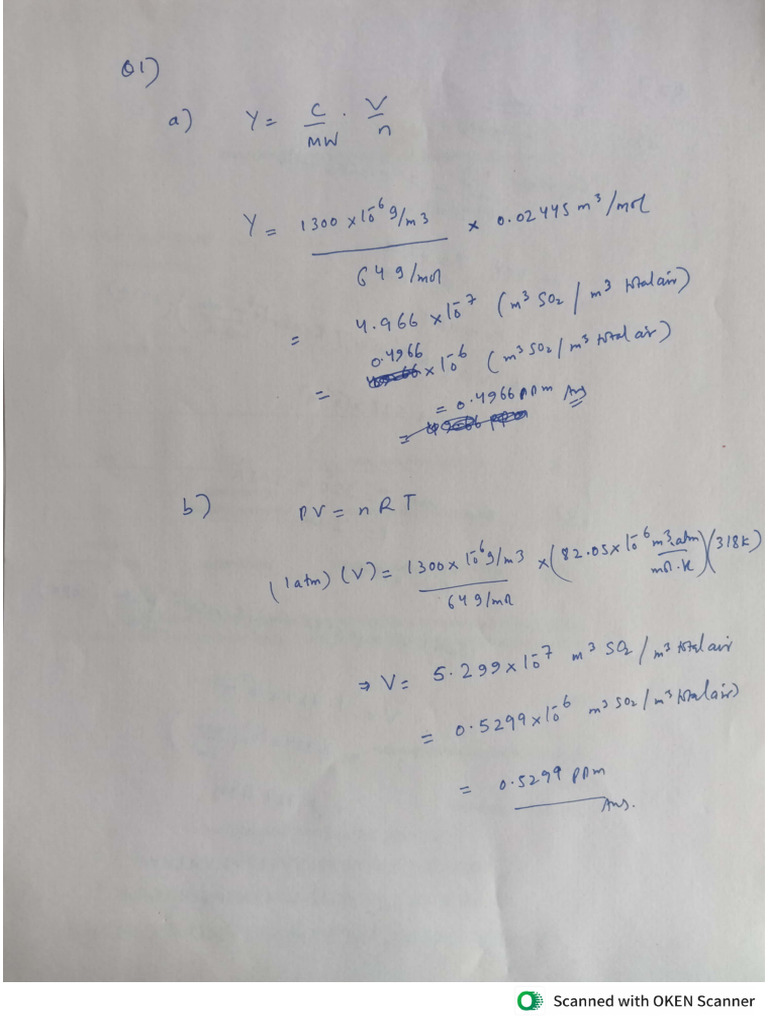 Q1)
a) Y = C/MW · V/n
Y = 1300 × 10⁻⁶ g/m3 / 64 g/mol × 0.02445 m³/mol
= 4.966 × 10⁻⁷ (m³ SO₂ / m³ total air)
= 0.4966 × 10⁻⁶ (m³ SO₂ / m³ total air)
= 0.4966 ppm Ans
b) PV = nRT
(1atm) (V) = 1300 × 10⁻⁶ g/m3 / 64 g/mol × (82.05 × 10⁻⁶ m³.atm / mol.K) (318K)
⇒ V = 5.299 × 10⁻⁷ m³ SO₂ / m³ total air
= 0.5299 × 10⁻⁶ m³ SO₂ / m³ total air)
= 0.5299 ppm
Ans.
Scanned with OKEN Scanner